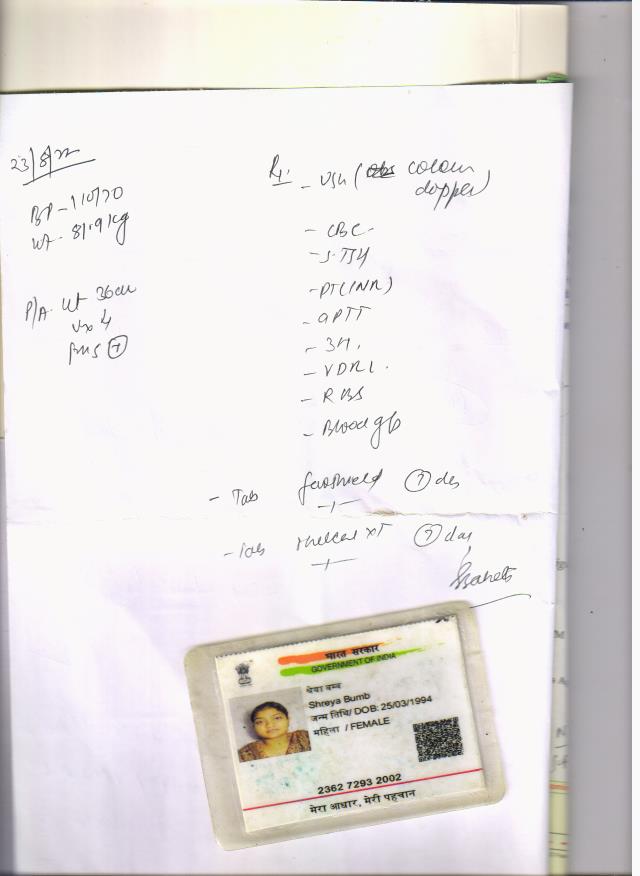 23/8/22
BP - 110/70
Wt - 81.9 kg
P/A. Ut 36cm
Vx 4
FHS (+)
Rx.
- USG ( colour
doppler)
- CBC -
- S. TSH
- PT(INR)
- aPTT
- 3H.
- VDRL.
- RBS
- Blood gp
- Tab
- Tab XT day
भारत सरकार
GOVERNMENT OF INDIA
श्रेया बम्ब
Shreya Bumb
जन्म तिथि/ DOB: 25/03/1994
महिला / FEMALE
2362 7293 2002
मेरा आधार, मेरी पहचान